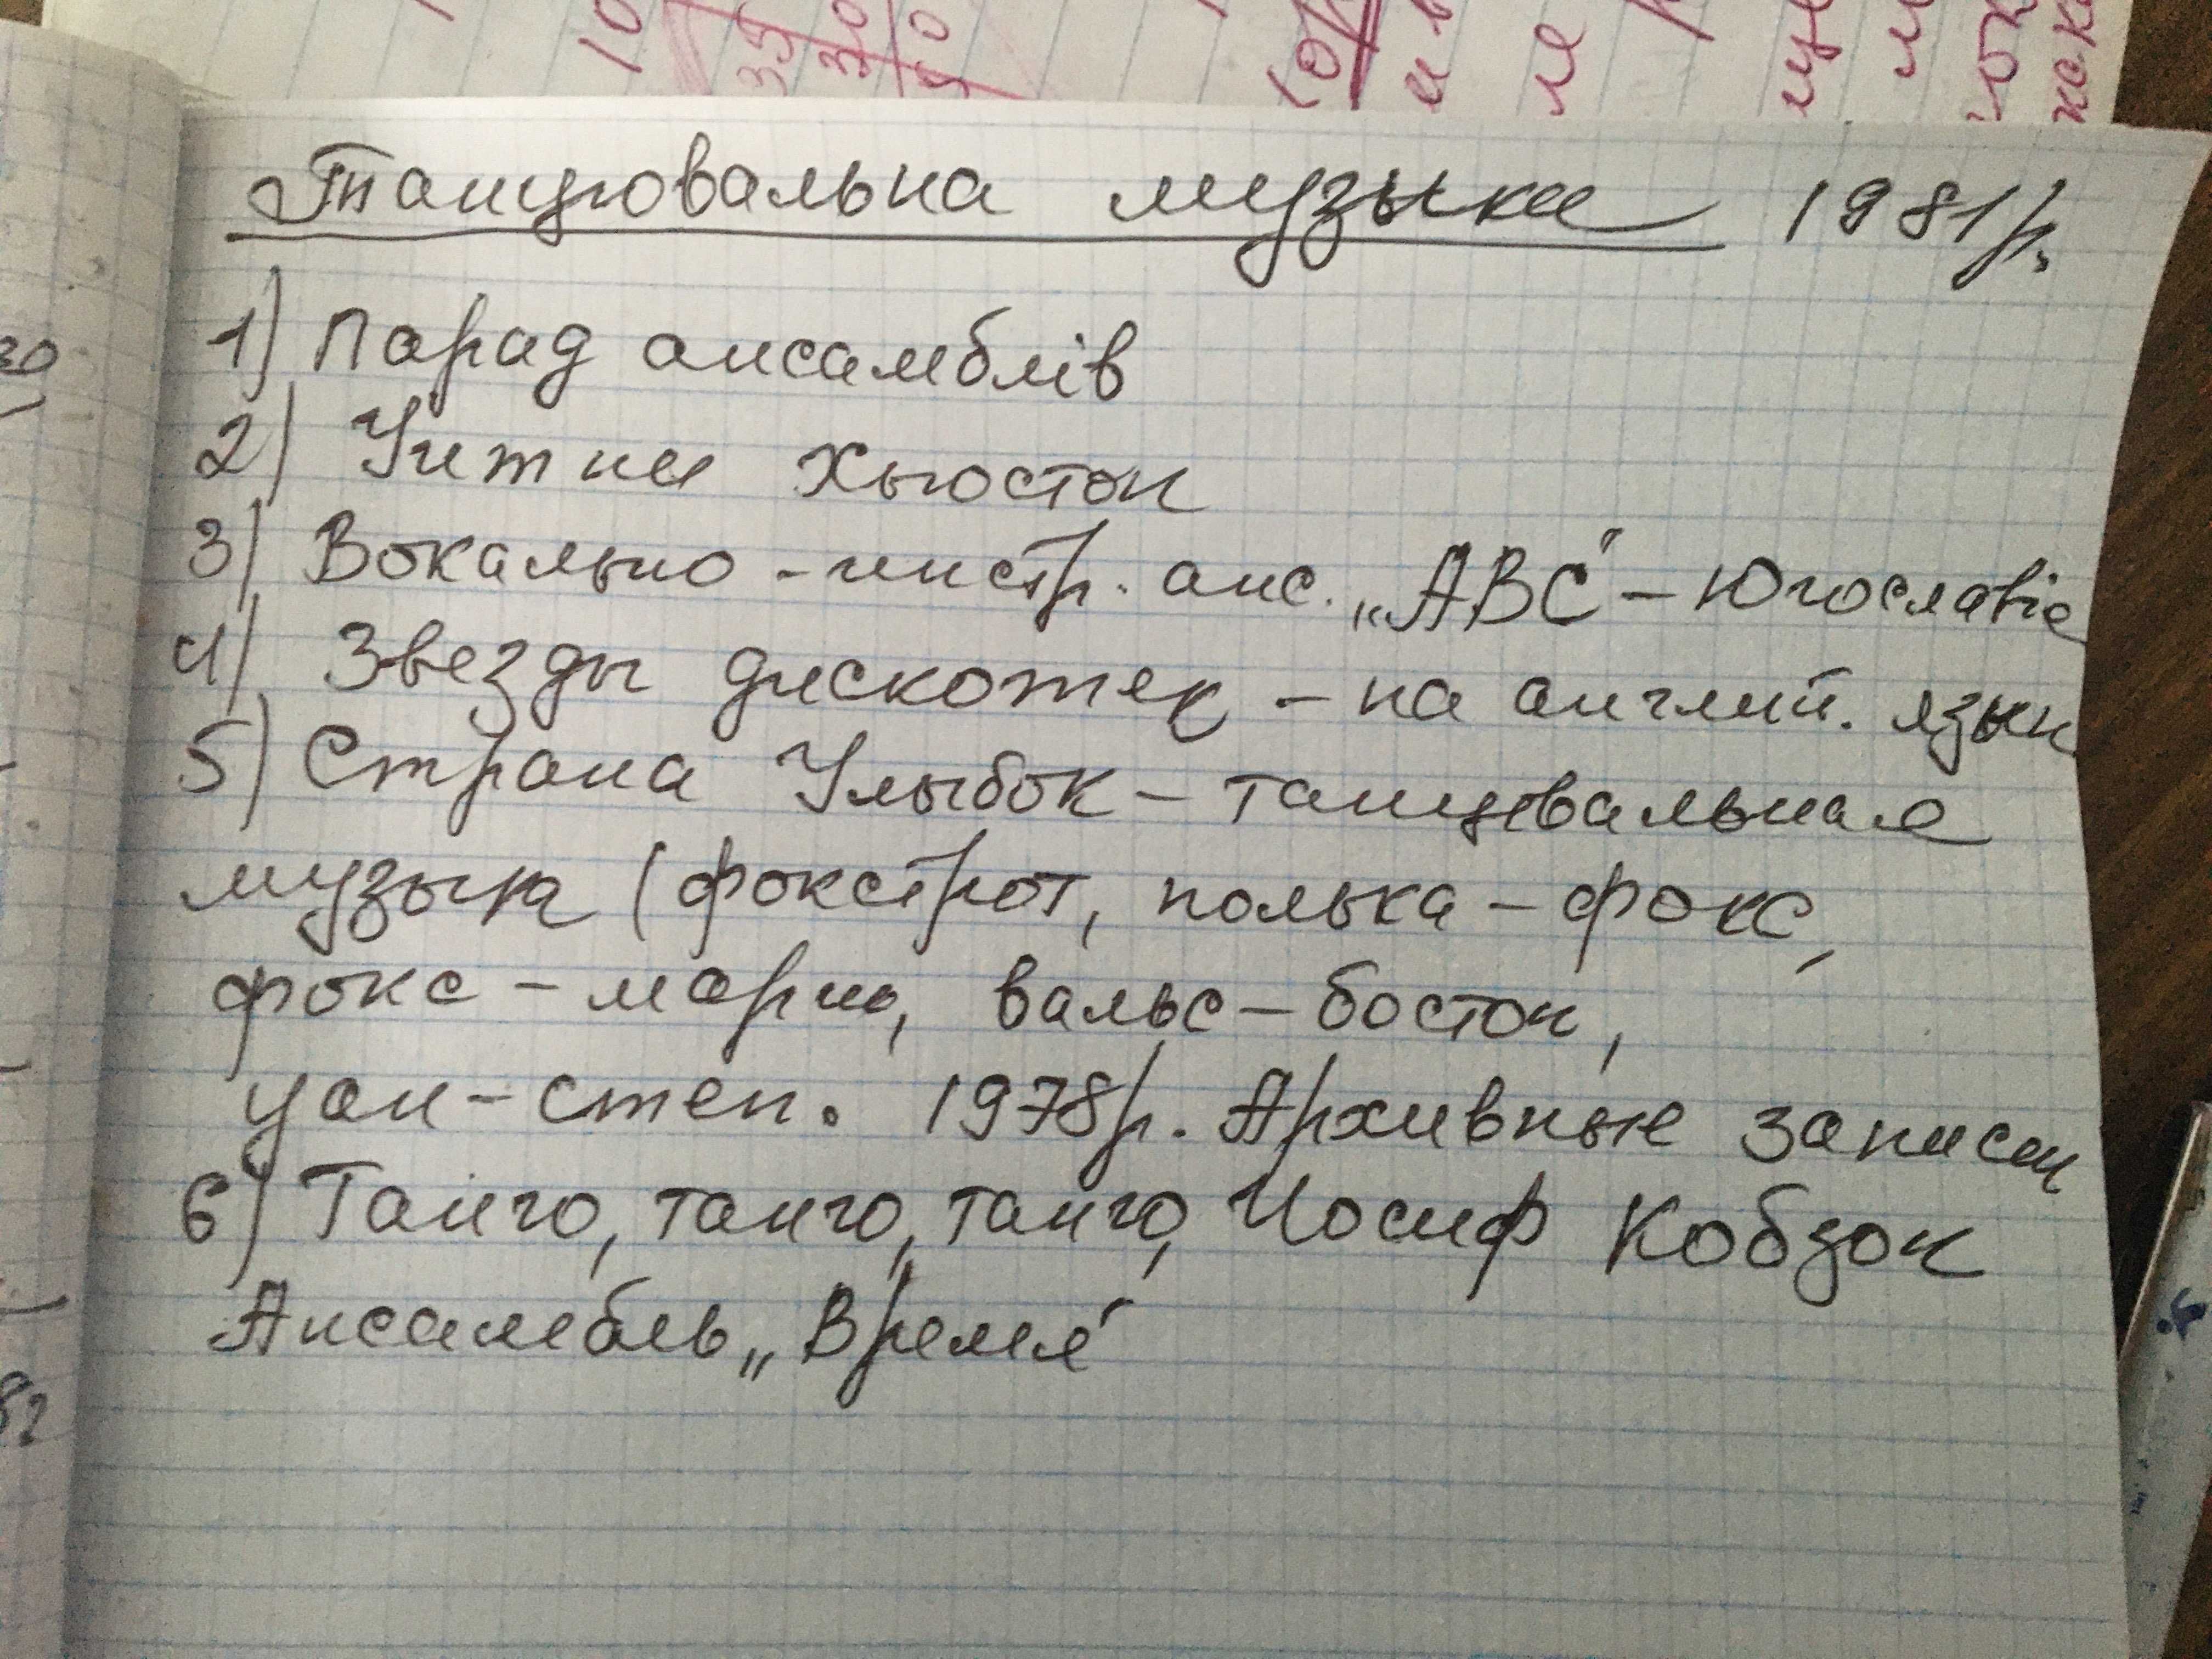 10
35
30
50
Танцювальна музыка 1981р.
1) Парад ансамблів
2) Уитни Хьюстон
3) Вокально-инстр. анс. „АВС" – Югославія
4) Звезды дискотек – на англий. язык
5) Страна Улыбок – танцевальная
музыка (фокстрот, полька – фокс,
фокс – марш, вальс – бостон,
уан – степ. 1978р. Архивные записи
6) Танго, танго, танго, Иосиф Кобзон
Ансамбль „Время"
30
82